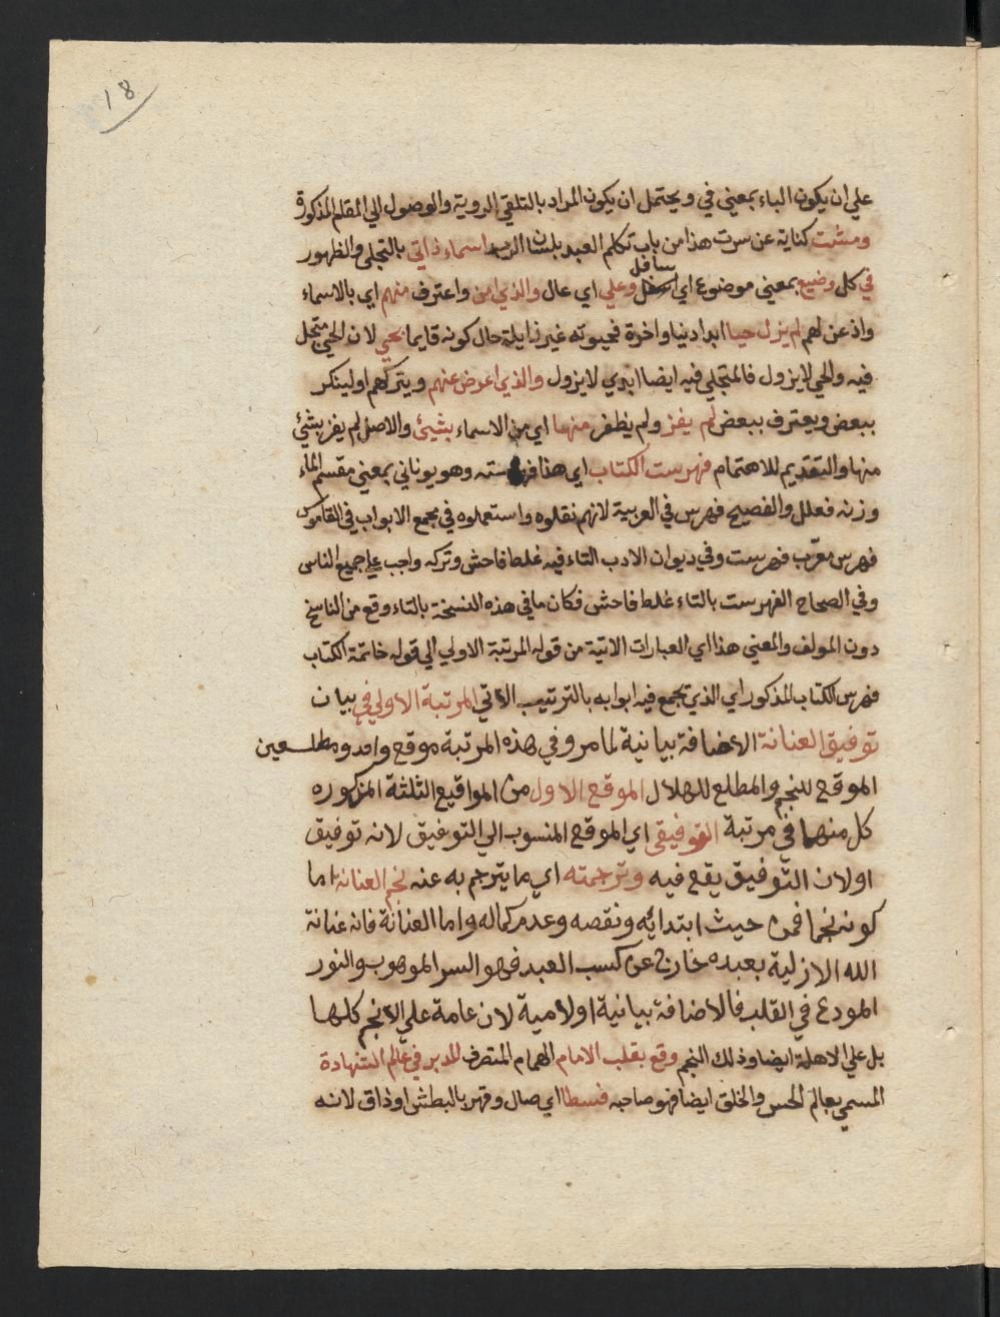 18
علي ان يكون الباء بمعني في ويحتمل ان يكون المراد بالتلقي الروية والوصول الي المقام المذكورة
ومشت كناية عن سرت هذا من باب تكلم العبد بلسان الرب اسماء ذاتي بالتجلي والظهور
في كل وضيع بمعني موضوع اي سافل وعلي اي عال والذي امن واعترف منهم اي بالاسماء
واذعن لهم لم يزل حيا ابدا دنيا واخرة فحيوته غير زايلة حال كونه قايما بحي لان الحي متجل
فيه والحي لايزول فالمتجلي فيه ايضا ابدي لايزول والذي اعرض عنهم ويتركهم او لينكر
ببعض ويعترف ببعض لم يفز ولم يظفر منها اي من الاسماء بشيئ والاصل لم يفز بشيئ
منها والتقديم للاهتمام فهرست الكتاب اي هذا فهرسته وهو يوناني بمعني مقسم الماء
وزنه فعلل والفصيح فهرس في العربية لانهم نقلوه واستعملوه في مجمع الابواب في القاموس
فهرس معرّب فهرست وفي ديوان الادب التاء فيه غلط فاحش وتركه واجب علي جميع الناس
وفي الصحاح الفهرست بالتاء غلط فاحش فكان ما في هذه النسخة بالتاء وقع من الناسخ
دون المولف والمعني هذا اي العبارات الاتية من قوله المرتبة الاولي الي قوله خاتمة الكتاب
فهرس الكتاب المذكور اي الذي تجمع فيه ابوابه بالترتيب الاتي المرتبة الاولي في بيان
توفيق العناية الاضافة بيانية لما مر وفي هذه المرتبة موقع واحد ومطلعين
الموقع للنجم والمطلع للهلال الموقع الاول من المواقيع الثلثة المزكوره
كل منهما في مرتبة التوفيقي اي الموقع المنسوب الي التوفيق لانه توفيق
اولان التوفيق يقع فيه وترجمته اي ما يترجم به عنه نجم العناية اما
كونه نجما فمن حيث ابتدايه ونقصه وعدم كماله واما العناية فانه عناية
الله الازلية بعبده خارج عن كسب العبد فهو السر الموهوب والنور
المودع في القلب فالاضافة بيانية اولامية لان عامة علي الانجم كلها
بل علي الاهلة ايضا وذلك النجم وقع بقلب الامام الهمام المتصرف المدبر في عالم الشهادة
المسمي بعالم الحس والخلق ايضا فهو صاحبه فسطا اي صال وقهر بالبطش اوذاق لانه